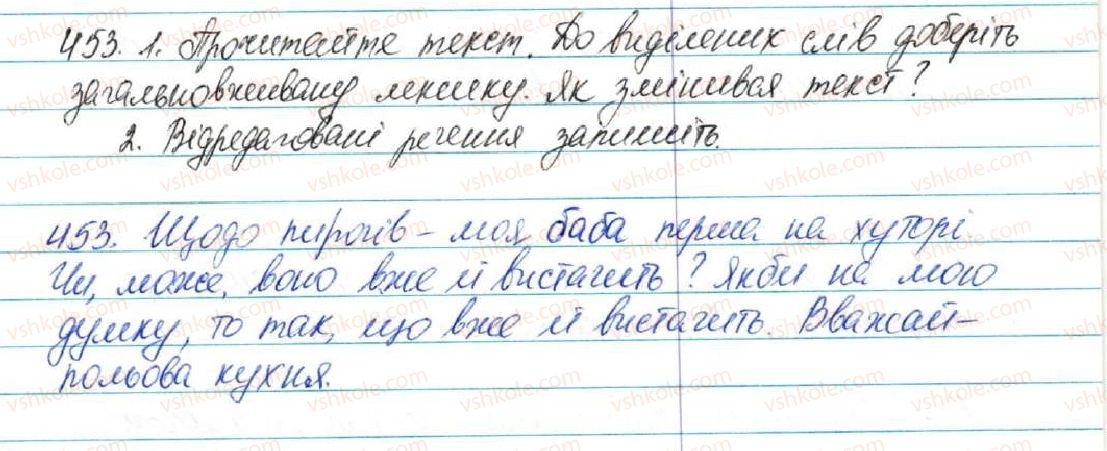 453. 1. Прочитайте текст. До виділених слів доберіть
загальновживану лексику. Як змінився текст?
2. Відредаговані речення запишіть.
453. Щодо пирогів – моя баба перша на хуторі.
Чи, може, воно вже й вистачить? Якби на мою
думку, то так, що вже й вистачить. Вважай –
польова кухня.